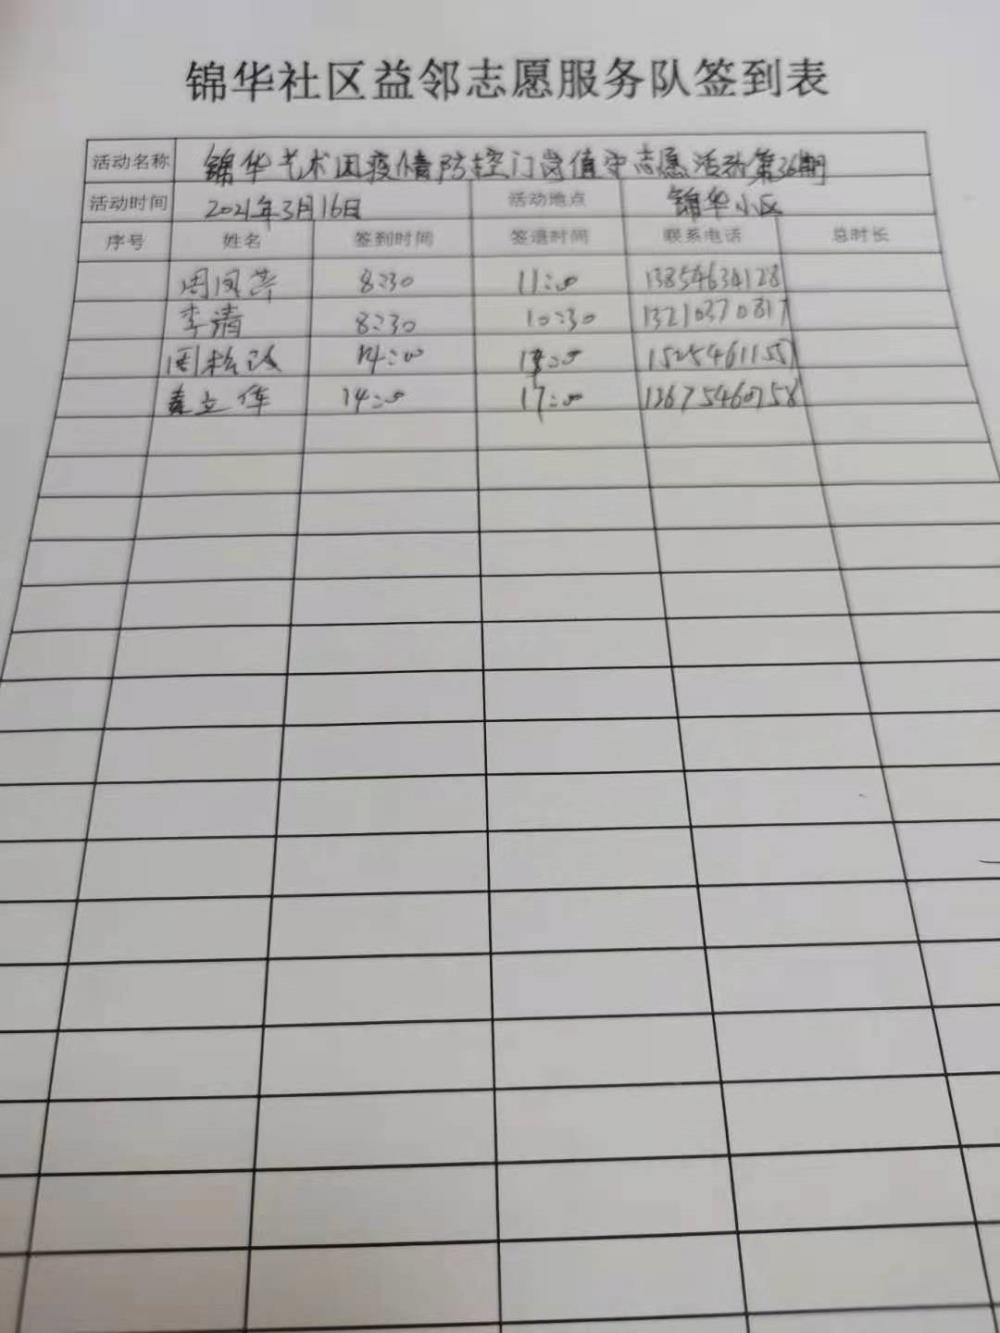 锦华社区益邻志愿服务队签到表
活动名称 锦华艺术园疫情防控门岗值守志愿活动第36期
活动时间 2021年3月16日 活动地点 锦华小区
序号 姓名 签到时间 签退时间 联系电话 总时长
周凤芹 8:30 11:00 13854634128
李清 8:30 10:30 13210370817
周松 14:00 :00 1525461155
立华 14:00 17:00 13675460758